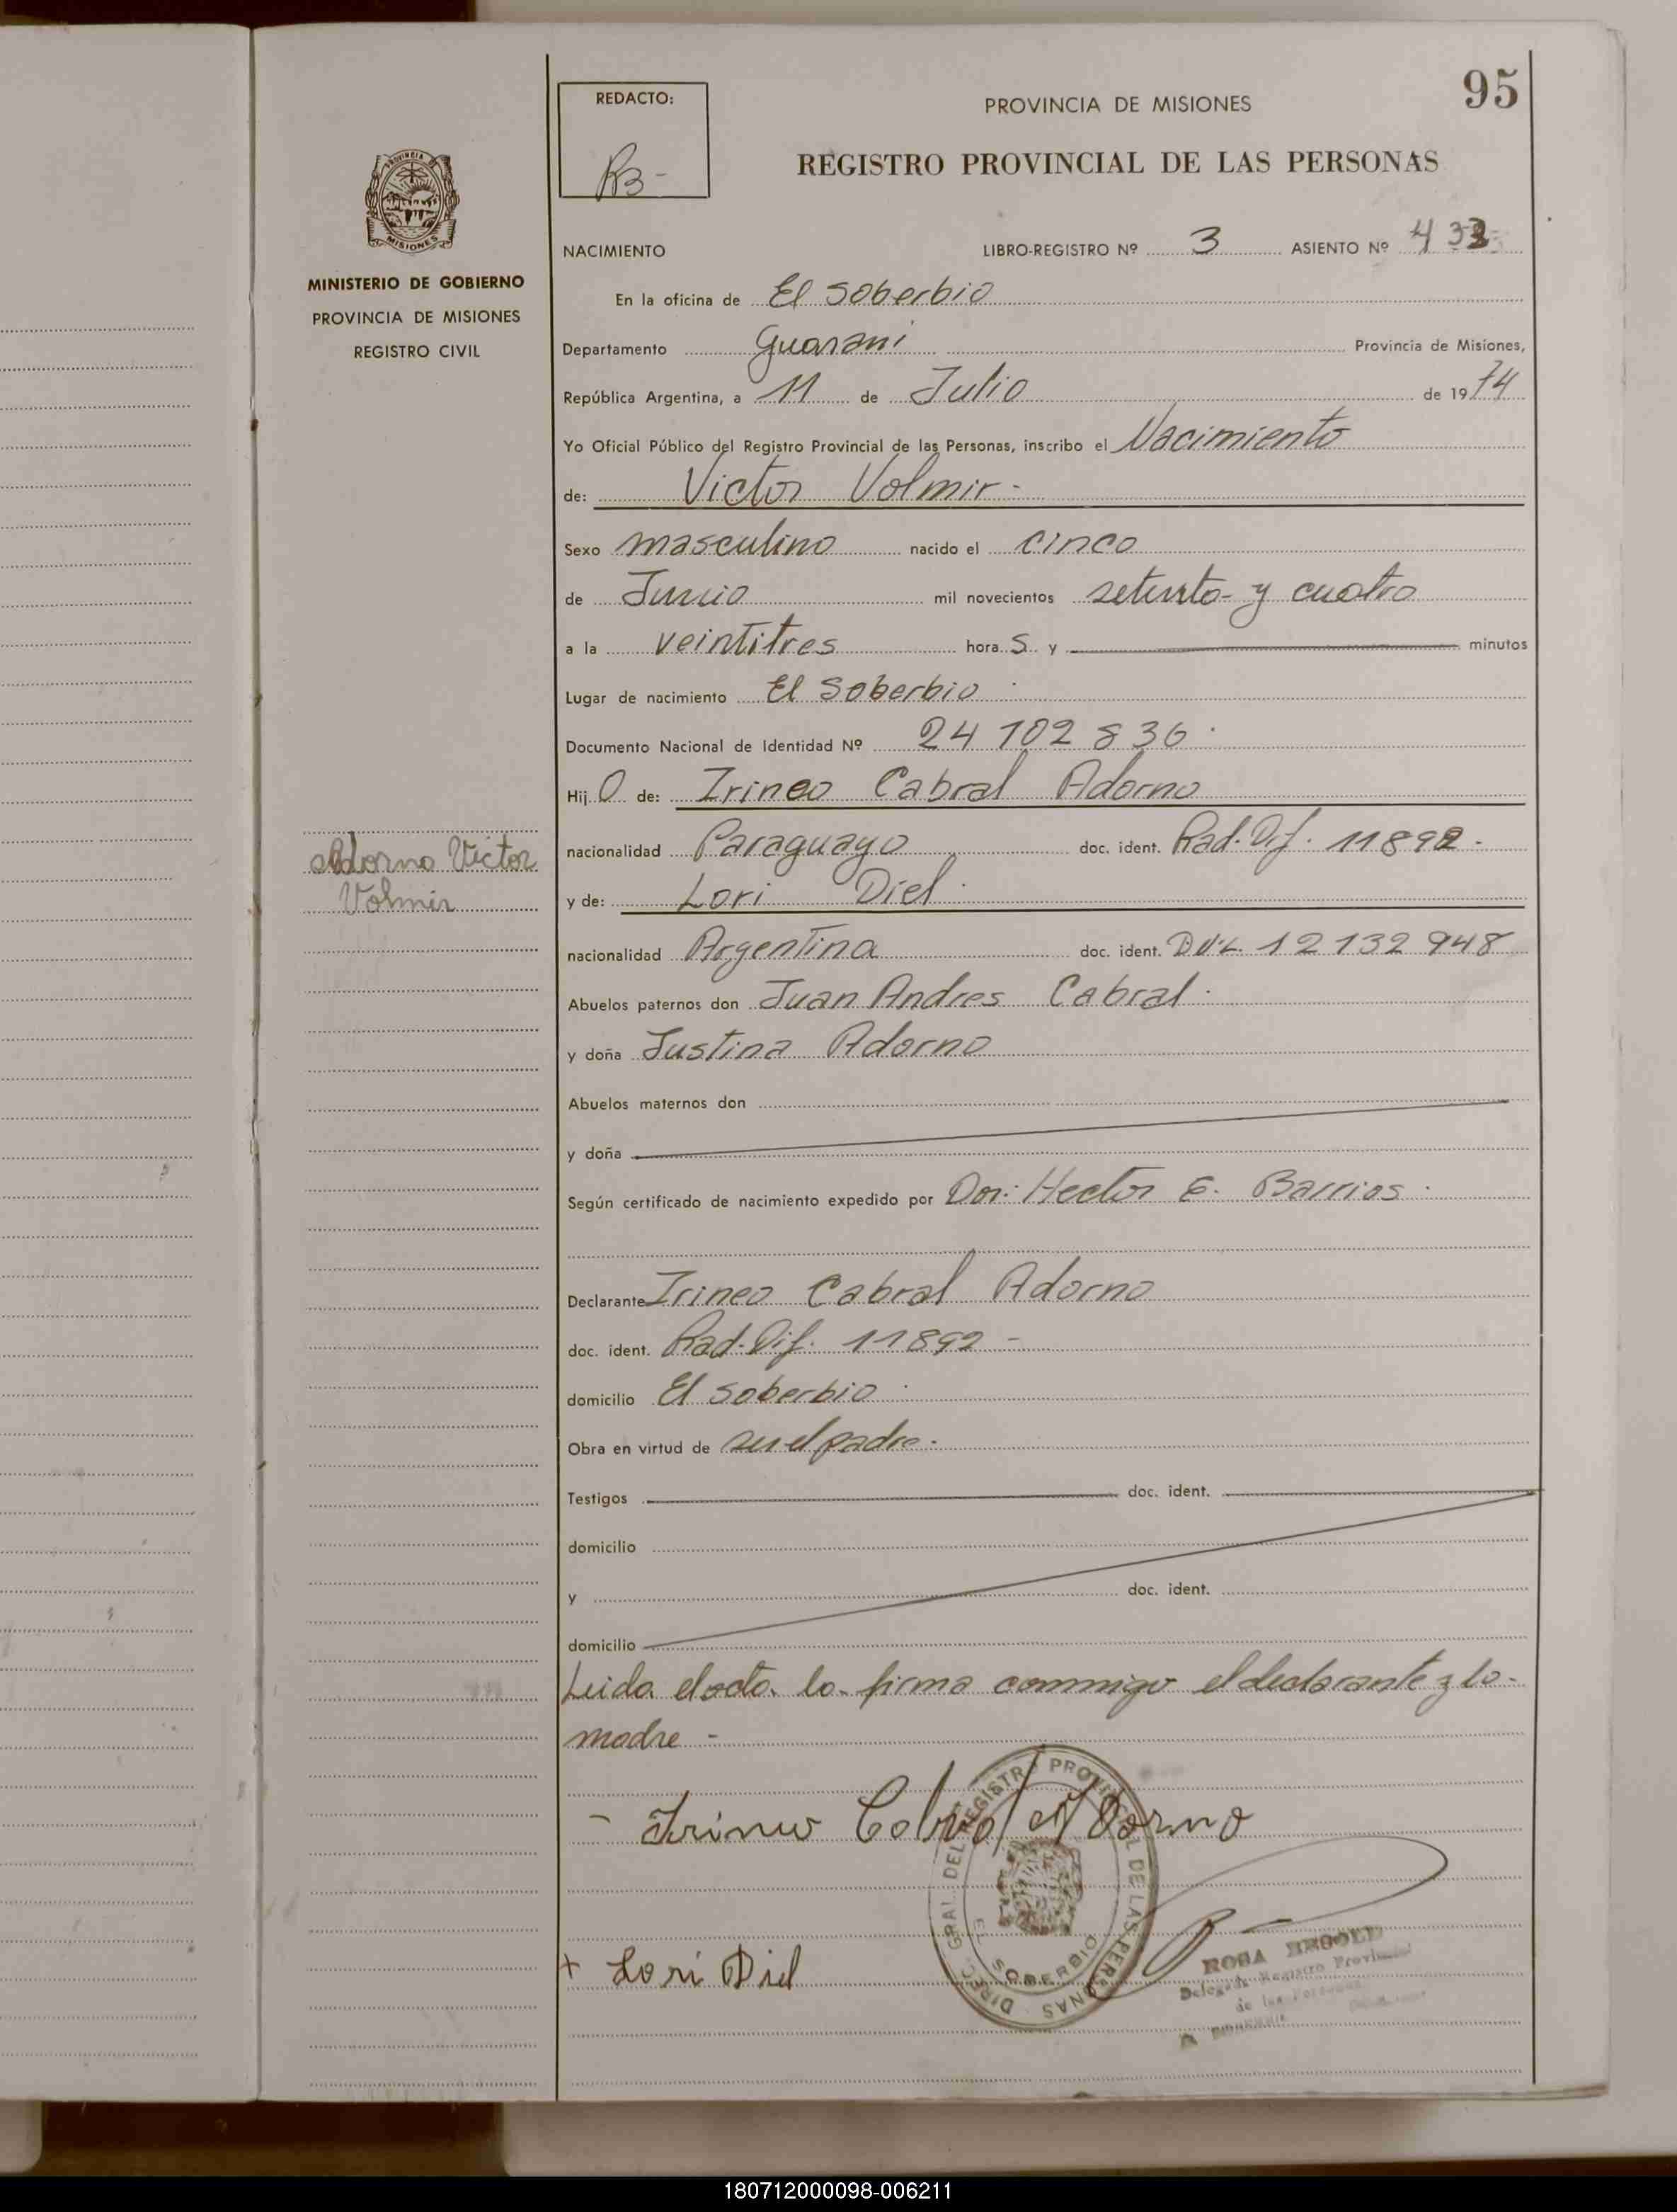 95
REDACTO:
PROVINCIA DE MISIONES
REGISTRO PROVINCIAL DE LAS PERSONAS
PROVINCIA DE
MISIONES
MINISTERIO DE GOBIERNO
PROVINCIA DE MISIONES
REGISTRO CIVIL
NACIMIENTO LIBRO-REGISTRO Nº 3 ASIENTO Nº 433
En la oficina de El Soberbio
Departamento Guarani Provincia de Misiones,
República Argentina, a 11 de Julio de 1974
Yo Oficial Público del Registro Provincial de las Personas, inscribo el Nacimiento
de: Victor Volmir -
Sexo masculino nacido el cinco
de Junio mil novecientos setenta y cuatro
a la veintitres hora s y minutos
Lugar de nacimiento El Soberbio
Documento Nacional de Identidad Nº 24 102 836
Hij o de: Irineo Cabral Adorno
nacionalidad Paraguayo doc. ident. Rad. Dif. 11892 -
Adorno Victor
Volmir
y de: Lori Diel
nacionalidad Argentina doc. ident. D.N.I. 12 132 948
Abuelos paternos don Juan Andres Cabral
y doña Justina Adorno
Abuelos maternos don
y doña
Según certificado de nacimiento expedido por Dor: Hector E. Barrios
Declarante Irineo Cabral Adorno
doc. ident. Rad. Dif. 11892 -
domicilio El Soberbio
Obra en virtud de ser el padre -
Testigos doc. ident.
domicilio
y doc. ident.
domicilio
Leida el acta la firma conmigo el declarante y la
madre -
- Irineo Cabral Adorno
+ Lori Diel
DIREC. GRAL. DEL REGISTRO PROVINCIAL DE LAS PERSONAS
EL SOBERBIO
ROSA
Delegada Registro Provincial
de las Personas
180712000098-006211